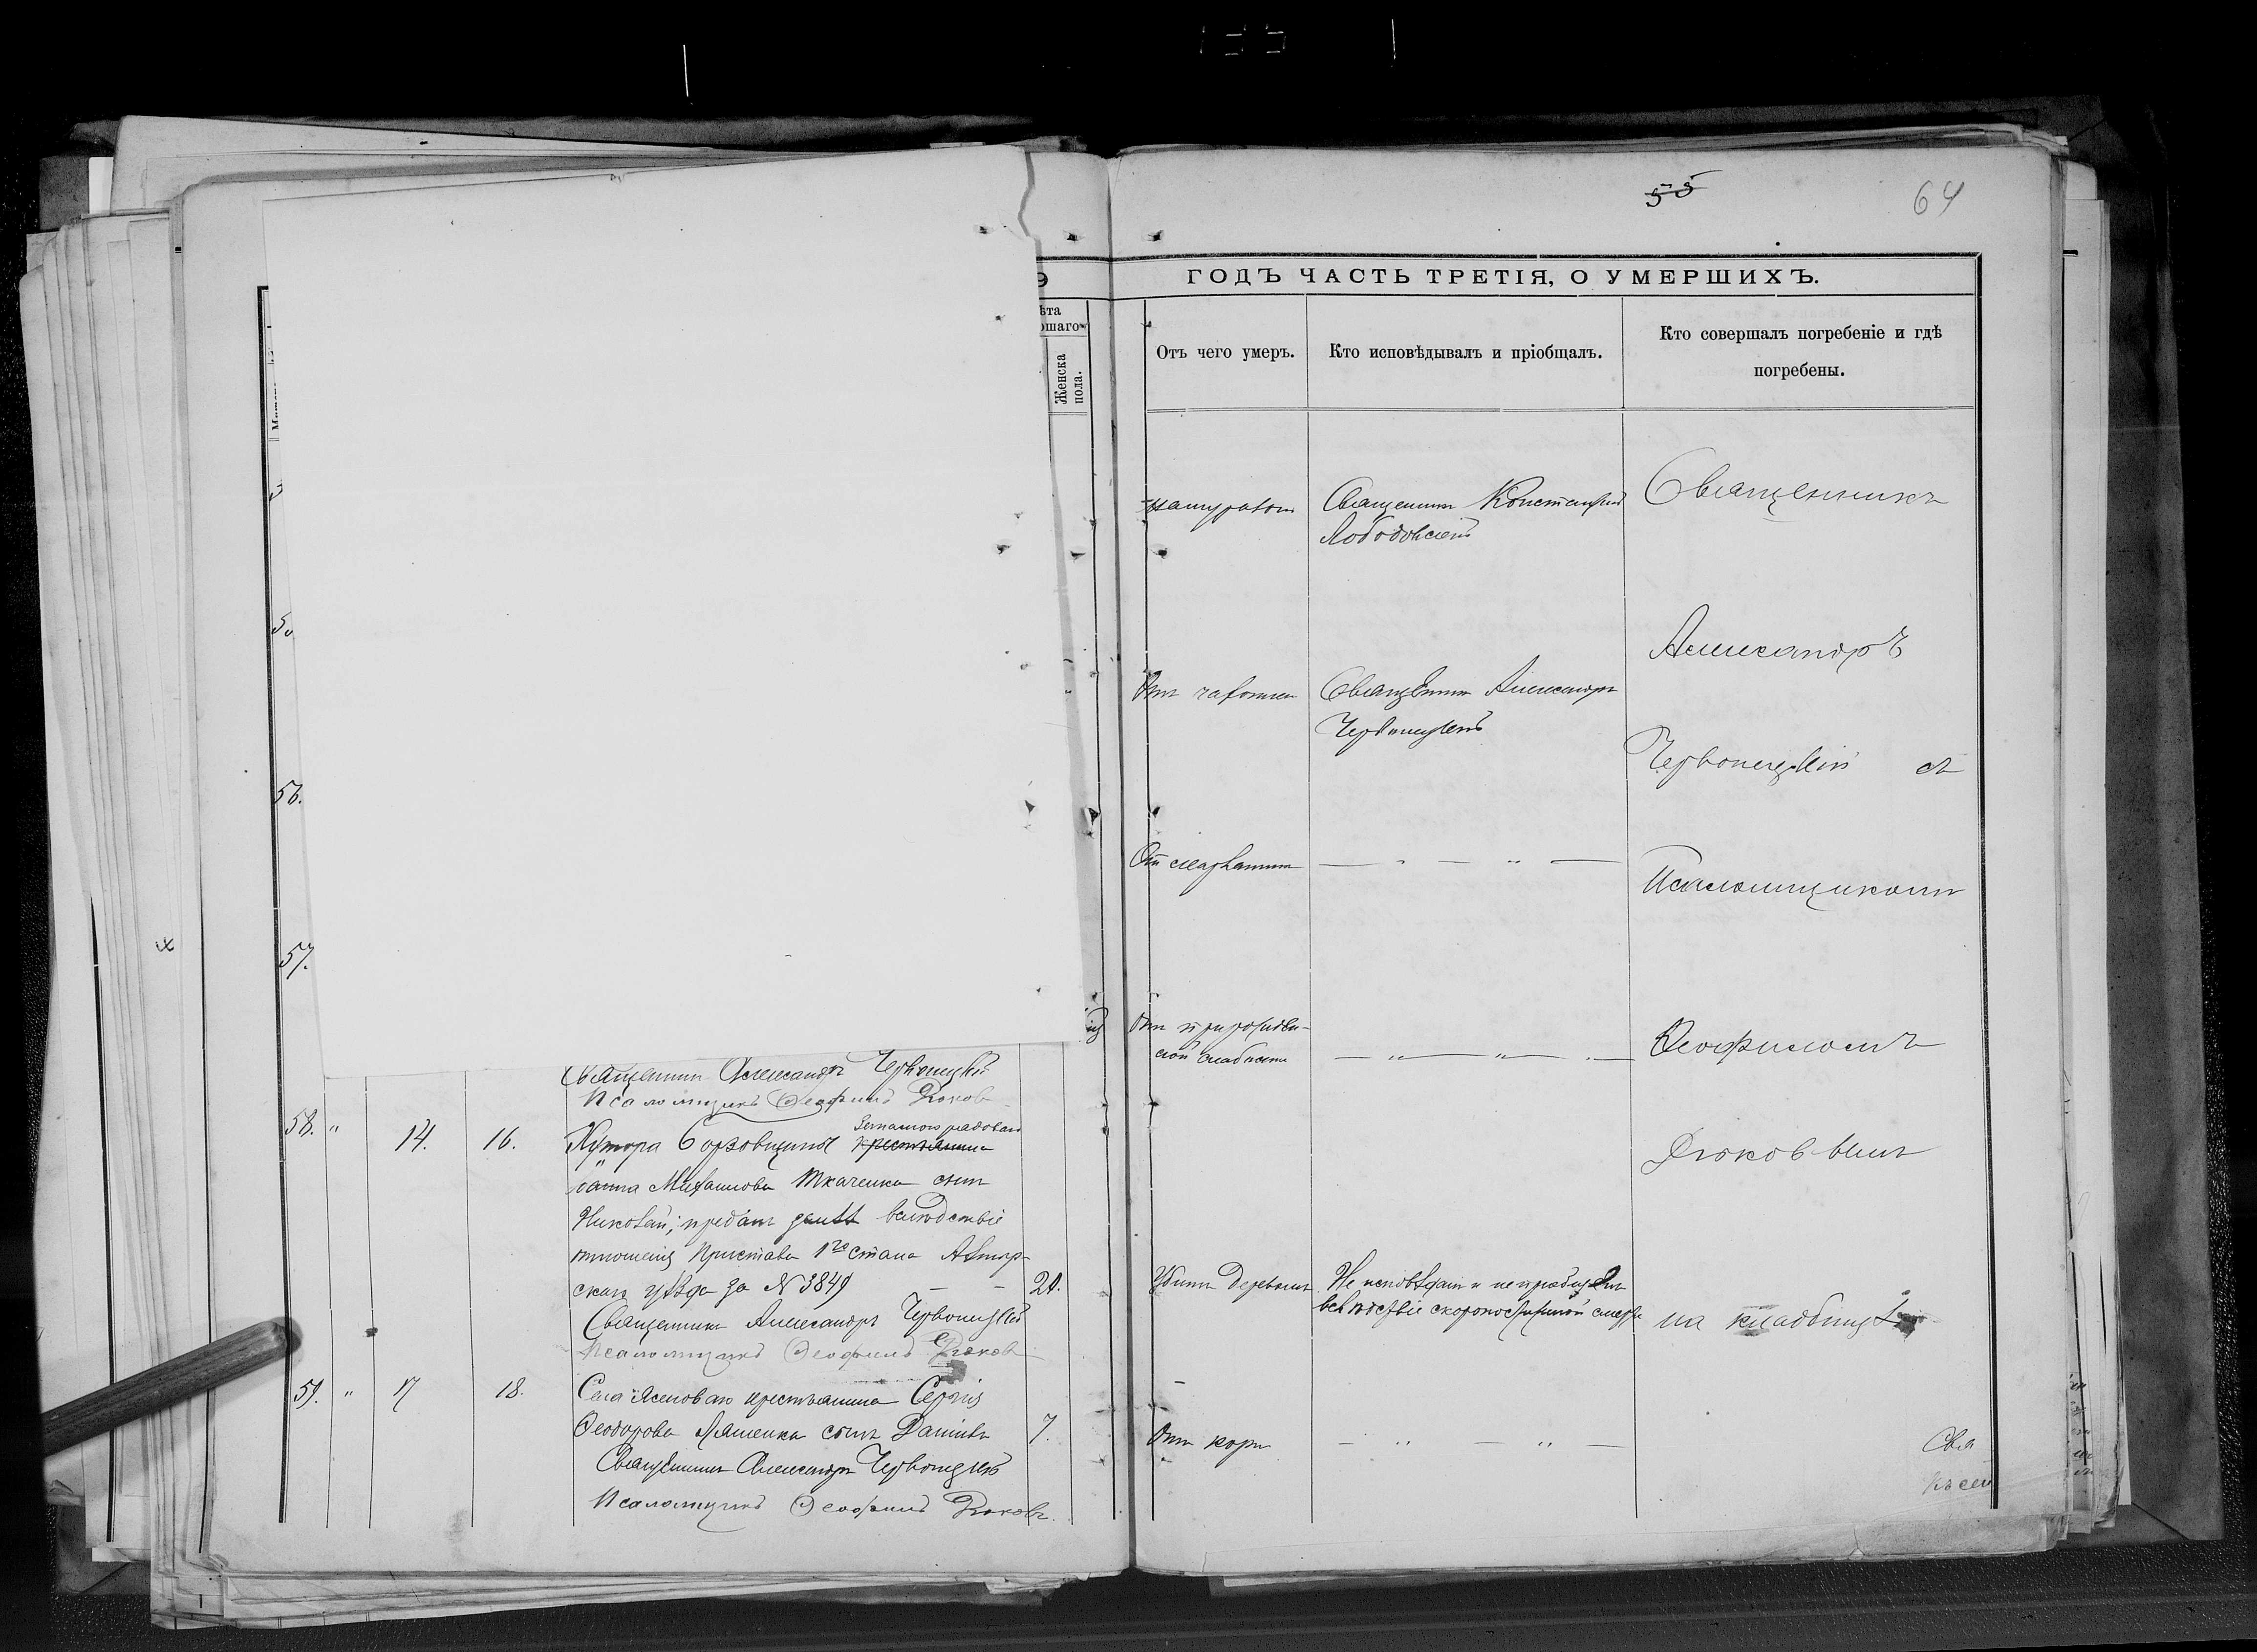 55
64
9 ГОДЪ ЧАСТЬ ТРЕТІЯ, О УМЕРШИХЪ.
ѣта
ршаго
Женска
пола.
Отъ чего умеръ.
Кто исповѣдывалъ и пріобщалъ.
Кто совершалъ погребеніе и гдѣ
погребены.
Священникъ Константинъ
Лободовскій
Священникъ
Александръ
Отъ чахотки
Священникъ Александръ
Червонецкій
Червонецкій съ
56.
Псаломщикомъ
57.
слабости
Ѳеофиломъ
Священникъ Александръ Червонецкій
Псаломщикъ Ѳеофилъ Дюковъ
58. " 14. 16.
Запаснаго рядоваго
Хутора крестьянина
Михаилова Ткаченка сынъ
Николай; преданъ землѣ вслѣдствіе
отношенія Пристава 1го стана Ахтыр-
скаго уѣзда за № 3849 — — 21.
Священникъ Александръ Червонецкій
Псаломщикъ Ѳеофилъ Дюковъ
Дюковымъ
Убитъ деревомъ
Не исповѣданъ и не пріобщенъ
вслѣдствіе скоропостижной смерти
на кладбищѣ
59. " 17 18.
Села Ясеноваго крестьянина Сергія
Ѳеодорова Ляшенка сынъ Даніилъ 7.
Священникъ Александръ Червонецкій
Псаломщикъ Ѳеофилъ Дюковъ.
Отъ кори
Свя